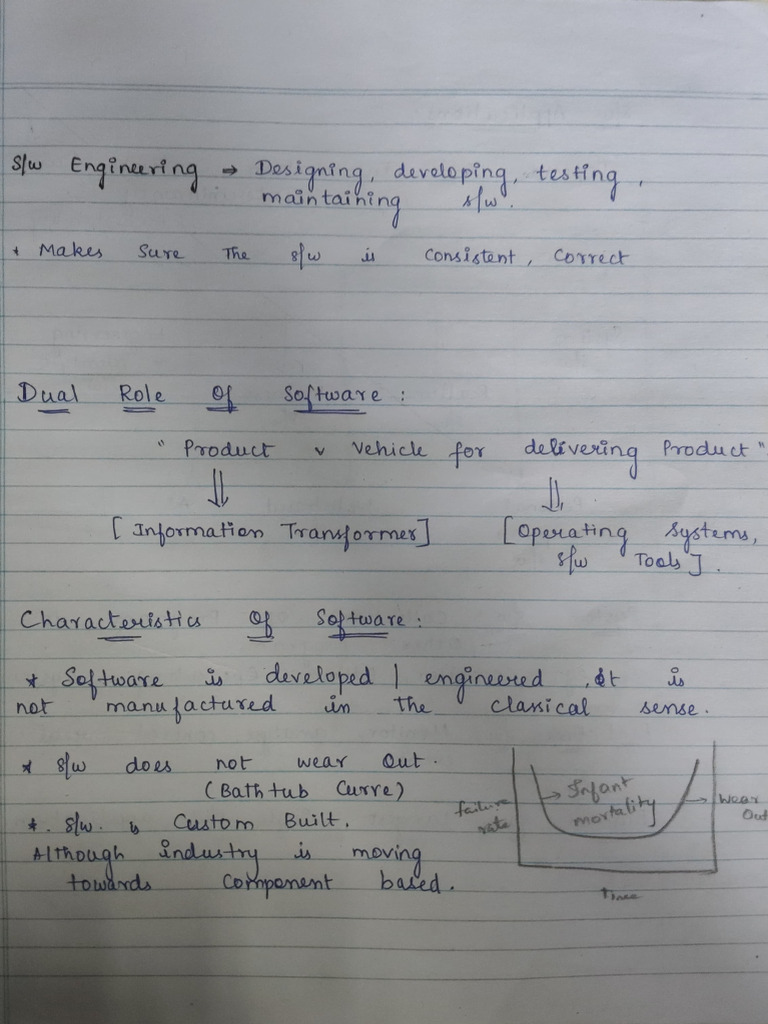 S/w Engineering → Designing, developing, testing,
maintaining s/w.
* Makes Sure The s/w is consistent, correct
Dual Role Of Software :
" Product & Vehicle for delivering Product"
[Information Transformer] [Operating Systems,
s/w Tools].
Characteristics Of Software :
* Software is developed | engineered, It is
not manufactured in the classical sense.
* S/w does not wear Out.
(Bath tub Curve)
*. S/w. is Custom Built.
Although industry is moving
towards Component based.
failure
rate
→ Infant
mortality
→ Wear
Out
time